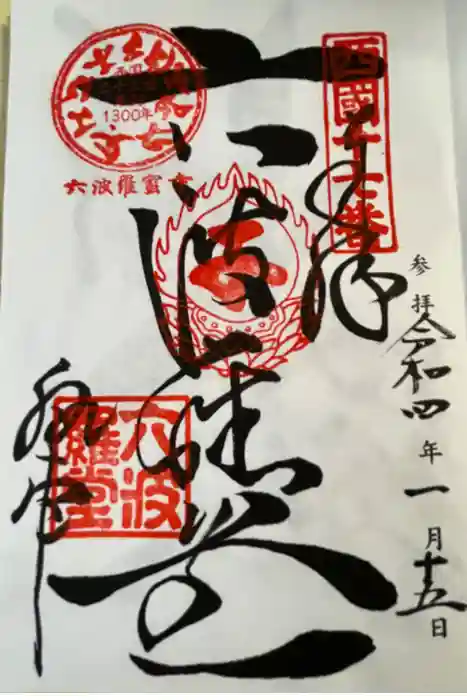 奉拝
西國十七番
参拝 令和四年一月十五日
六波羅堂
1300年
六波羅蜜寺
六波羅堂